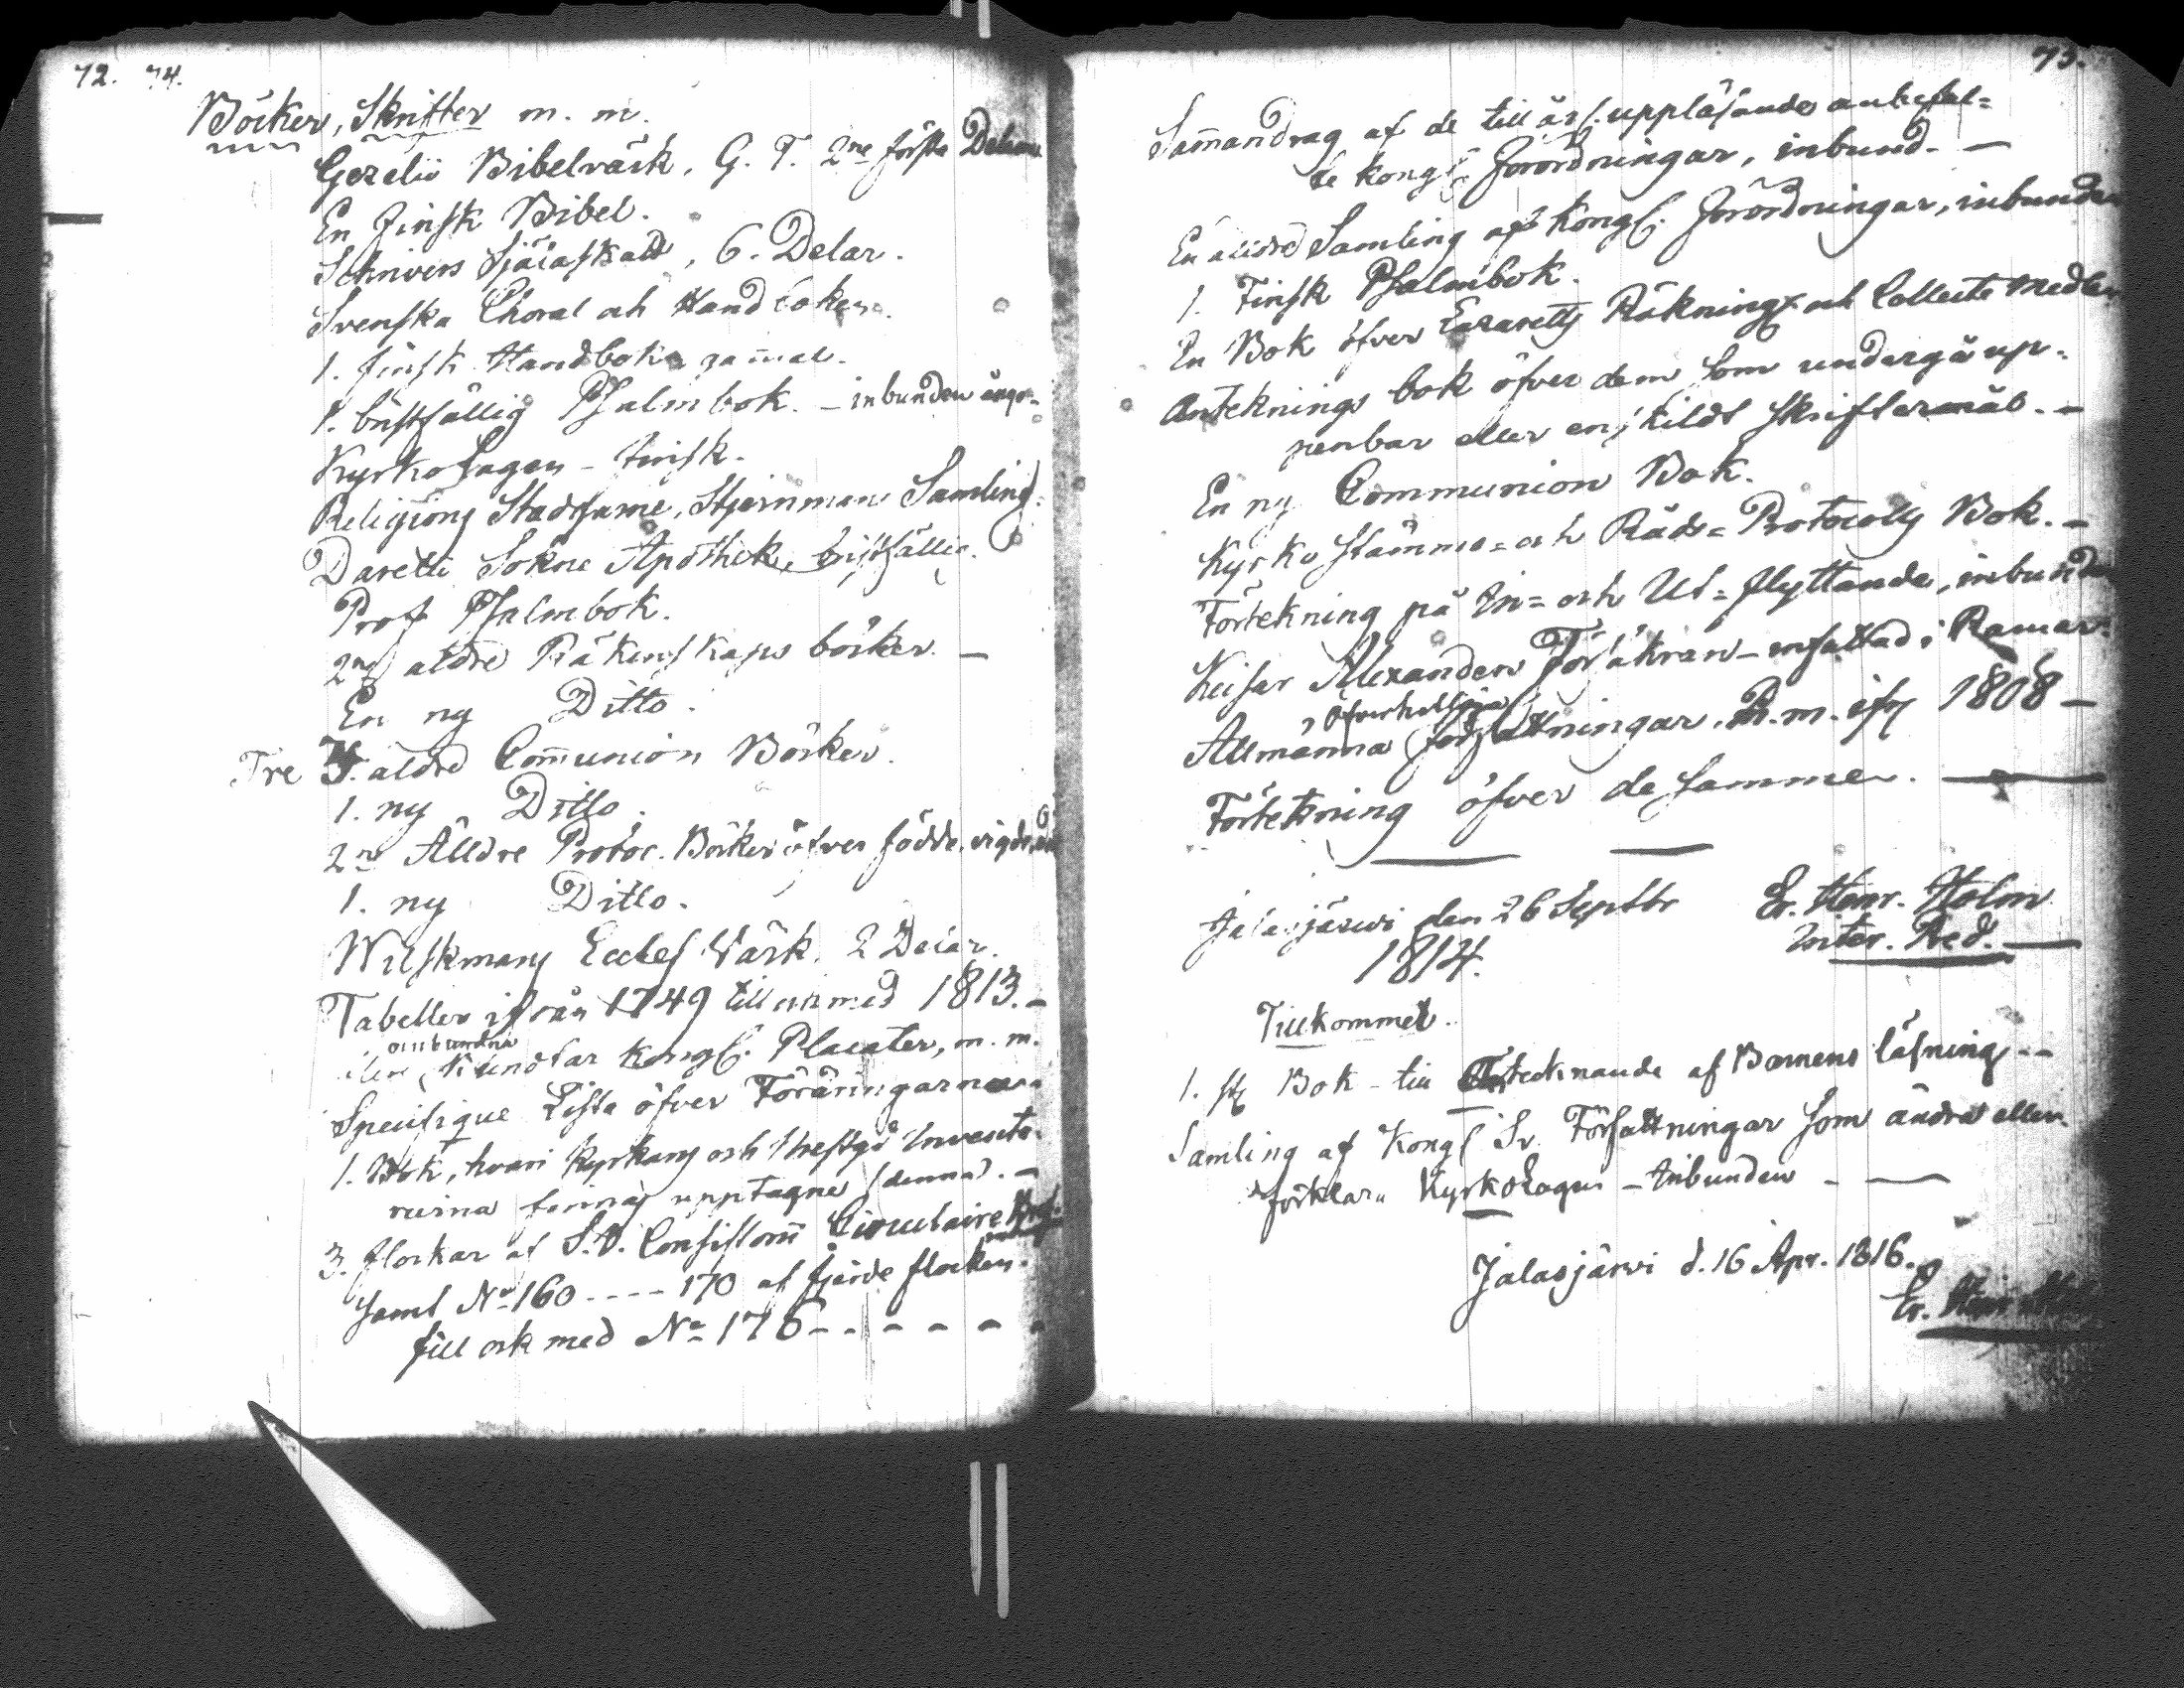 72. 74.
Böcker, Skrifter m. m.
Gezelii Bibelvärk, G. T. 2ne första Delarne
En finsk Bibel.
Scrivers Själaskatt, 6. Delar.
Svenska Choral och Handboken.
1. finsk Handbok gam̄al.
1. bristfällig Psalmbok. – inbunden
Kyrko Lagen – finsk.
Religions Stadgarne, Stjernmans Samling.
Darelli Sokne Apothek, bristfällig.
Prof Psalmbok.
2ne äldre Räkenskaps böcker. –
En ny Ditto.
Tre äldre Com̄union Böcker.
1. ny Ditto.
2ne Äldre Protoc. Böcker öfver födde, vigde,
1. ny Ditto.
Wilskmans Eccles. Värk. 2 Delar.
Tabeller ifrån 1749 till och med 1813. –
oinbundna
Luntar Kongl. Placater, m. m.
Specifique Lista öfver Föräringarna
1. Bok, hvari Kyrkans och Invento-
rierna finnas upptagne (denna). –
3. flockar af S. V. Consistorii Circulaire Bref.
samt No 160 - - - - 170 af fjerde flocken.
till och med No 176 - - - - - -
73.
Sam̄andrag af de till årl. uppläsande anbefal=
de Kongl. Förordningar, inbund. –
En äldre Samling af Kongl. Förordningar, inbunden
1. Finsk Psalmbok.
En Bok öfver Lazaretts Räkning och Collecte Medlen
Antecknings bok öfver dem som undergå up-
penbar eller enskildt skriftermål. –
En ny Communion Bok.
Kyrko stämmo= och Råds= Protocolls Bok. –
Förtekning på In= och Ut= flyttande, inbunden
Keisar Alexanders Försäkran – infattad i Ramar.
Allmänna författningar m. m. ifr. 1808 –
Förtekning öfver de samma. –
Jalasjärwi den 26 Septbr
1814.
Er. Henr. Holm
Inter. Pred.
Tillkommer.
1. st. Bok – till Antecknande af Barnens läsning --
Samling af Kongl. Sv. Författningar som ändra eller
förklara KyrkoLagen – Inbunden –
Jalasjärwi d. 16 Apr. 1816.
Er. Henr.